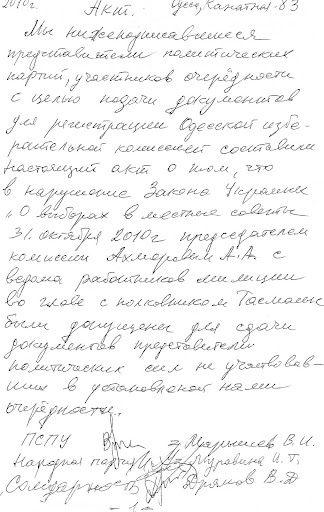 2010г. Акт. Одесса, Канатная-83
Мы нижеподписавшиеся
представители политических
партий, участников очерёдности
с целью подачи документов
для регистрации Одесской изби-
рательной комиссией составили
настоящий акт о том, что
в нарушение Закона Украины
"О выборах в местные советы
31. октября 2010г председателем
комиссии Ахмеровым А.А. с
ведома работников милиции
во главе с полковником
были допущены для сдачи
документов представители
политических сил не участвовав-
ших в установленой нами
очерёдности.
ПСПУ В.И.
Народная партия Муравина И. Г.
Солидарность В.Д
-1-